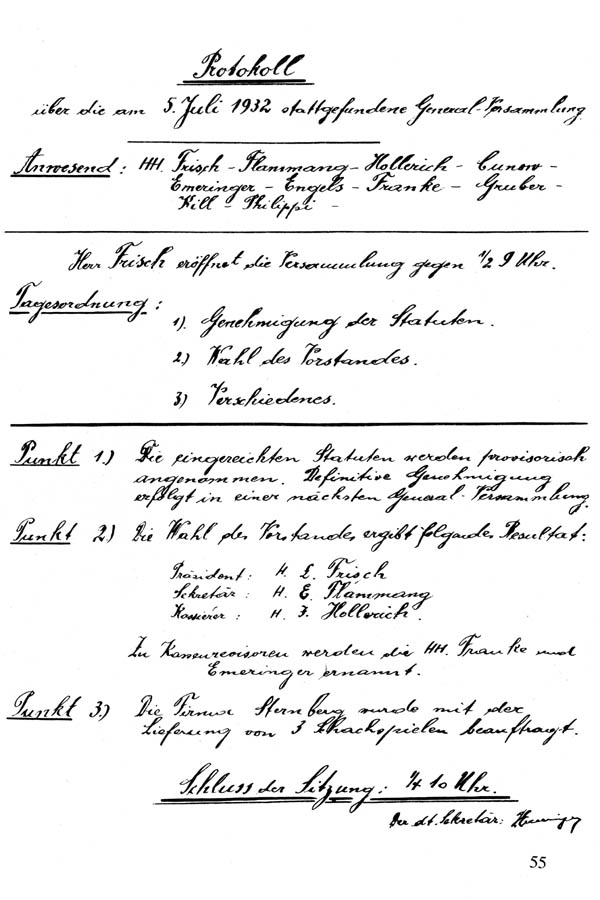 Protokoll
über die am 5. Juli 1932 stattgefundene General-Versammlung
Anwesend: HH. Frisch - Flammang - Hollerich - Cunow -
Emeringer - Engels - Franke - Gruber -
Kill - Philippi -
Herr Frisch eröffnet die Versammlung gegen 1/2 9 Uhr.
Tagesordnung:
1). Genehmigung der Statuten.
2.) Wahl des Vorstandes.
3) Verschiedenes.
Punkt 1.) Die eingereichten Statuten werden provisorisch
angenommen. Definitive Genehmigung
erfolgt in einer nächsten General-Versammlung.
Punkt 2.) Die Wahl des Vorstandes ergibt folgendes Resultat:
Präsident: H. L. Frisch
Sekretär: H. E. Flammang
Kassierer: H. F. Hollerich.
Zu Kassenrevisoren werden die HH. Franke und
Emeringer ernannt.
Punkt 3.) Die Firma Sternberg wurde mit der
Lieferung von 3 Schachspielen beauftragt.
Schluss der Sitzung: 1/4 10 Uhr.
Der dt. Sekretär:
55